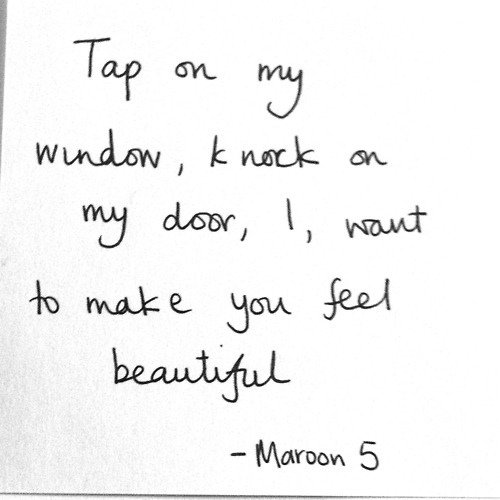 Tap on my
window, knock on
my door, I, want
to make you feel
beautiful
- Maroon 5